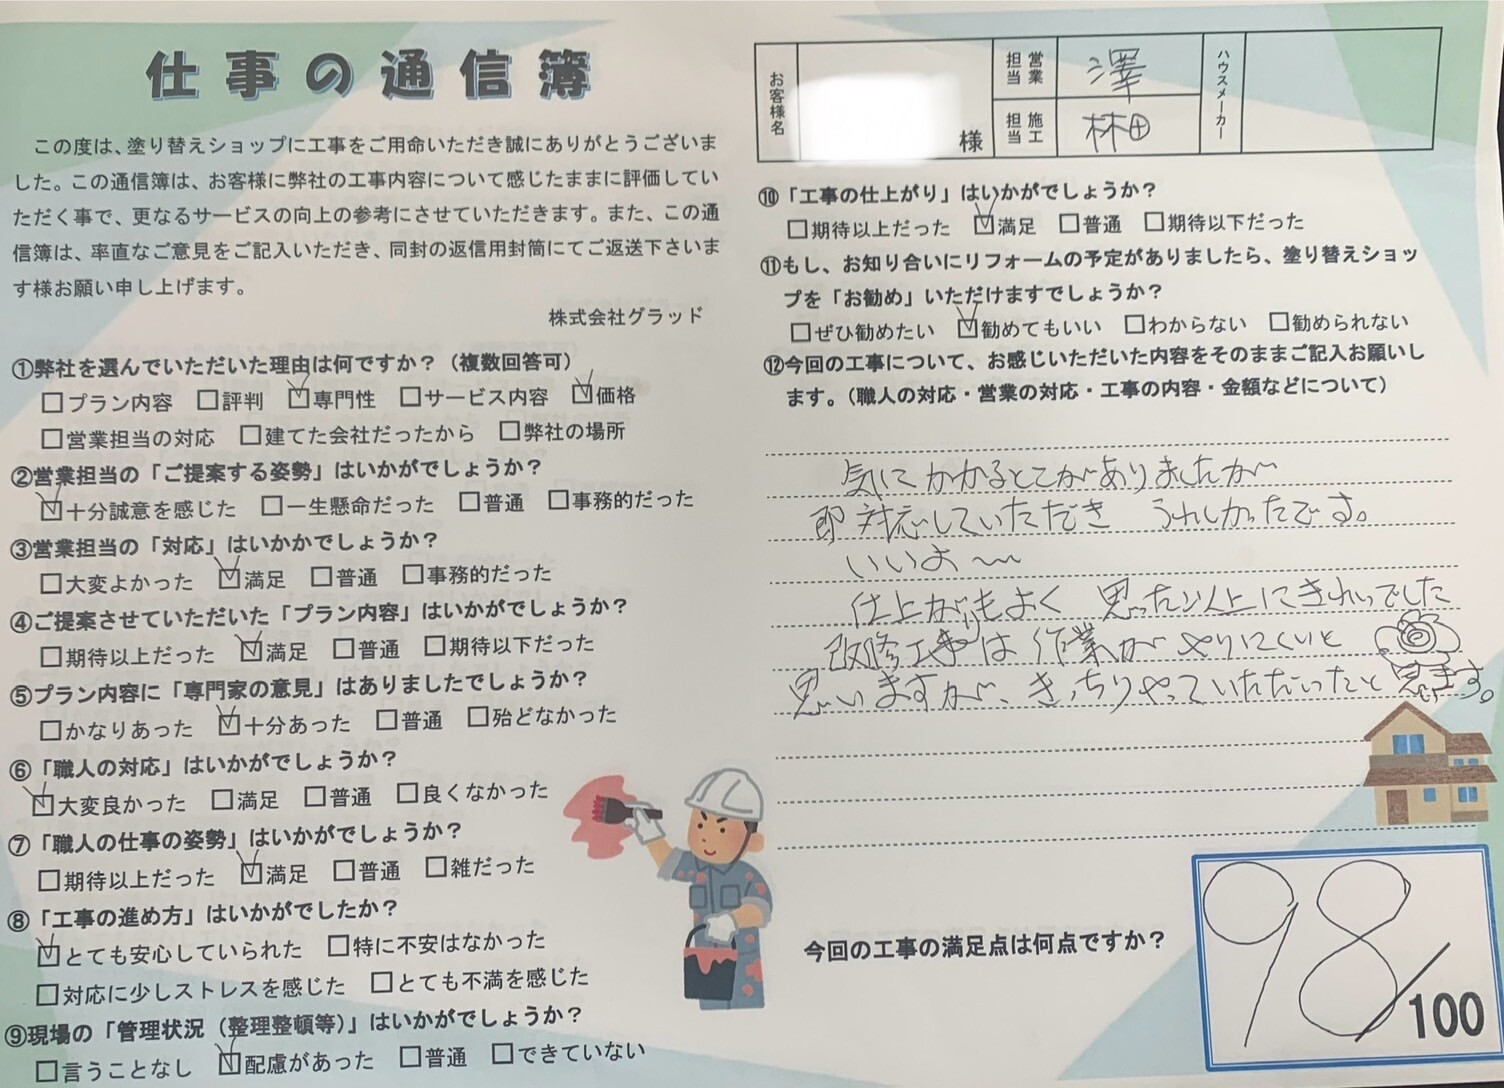 仕事の通信簿
この度は、塗り替えショップに工事をご用命いただき誠にありがとうございま
した。この通信簿は、お客様に弊社の工事内容について感じたままに評価してい
ただく事で、更なるサービスの向上の参考にさせていただきます。また、この通
信簿は、率直なご意見をご記入いただき、同封の返信用封筒にてご返送下さいま
す様お願い申し上げます。
株式会社グラッド
①弊社を選んでいただいた理由は何ですか？（複数回答可）
□プラン内容 □評判 ☑専門性 □サービス内容 ☑価格
□営業担当の対応 □建てた会社だったから □弊社の場所
②営業担当の「ご提案する姿勢」はいかがでしょうか？
☑十分誠意を感じた □一生懸命だった □普通 □事務的だった
③営業担当の「対応」はいかかでしょうか？
□大変よかった ☑満足 □普通 □事務的だった
④ご提案させていただいた「プラン内容」はいかがでしょうか？
□期待以上だった ☑満足 □普通 □期待以下だった
⑤プラン内容に「専門家の意見」はありましたでしょうか？
□かなりあった ☑十分あった □普通 □殆どなかった
⑥「職人の対応」はいかがでしょうか？
☑大変良かった □満足 □普通 □良くなかった
⑦「職人の仕事の姿勢」はいかがでしょうか？
□期待以上だった ☑満足 □普通 □雑だった
⑧「工事の進め方」はいかがでしたか？
☑とても安心していられた □特に不安はなかった
□対応に少しストレスを感じた □とても不満を感じた
⑨現場の「管理状況（整理整頓等）」はいかがでしょうか？
□言うことなし ☑配慮があった □普通 □できていない
お客様名 様 営業担当 澤 施工担当 林田 ハウスメーカー
⑩「工事の仕上がり」はいかがでしょうか？
□期待以上だった ☑満足 □普通 □期待以下だった
⑪もし、お知り合いにリフォームの予定がありましたら、塗り替えショッ
プを「お勧め」いただけますでしょうか？
□ぜひ勧めたい ☑勧めてもいい □わからない □勧められない
⑫今回の工事について、お感じいただいた内容をそのままご記入お願いし
ます。（職人の対応・営業の対応・工事の内容・金額などについて）
気にかかるとこがありましたが
即対応していただき うれしかったです。
いいよ〜
仕上がりもよく 思った以上にきれいでした
改修工事は作業がやりにくいと
思いますが、きっちりやっていただいたと思います。
今回の工事の満足点は何点ですか？
98/100